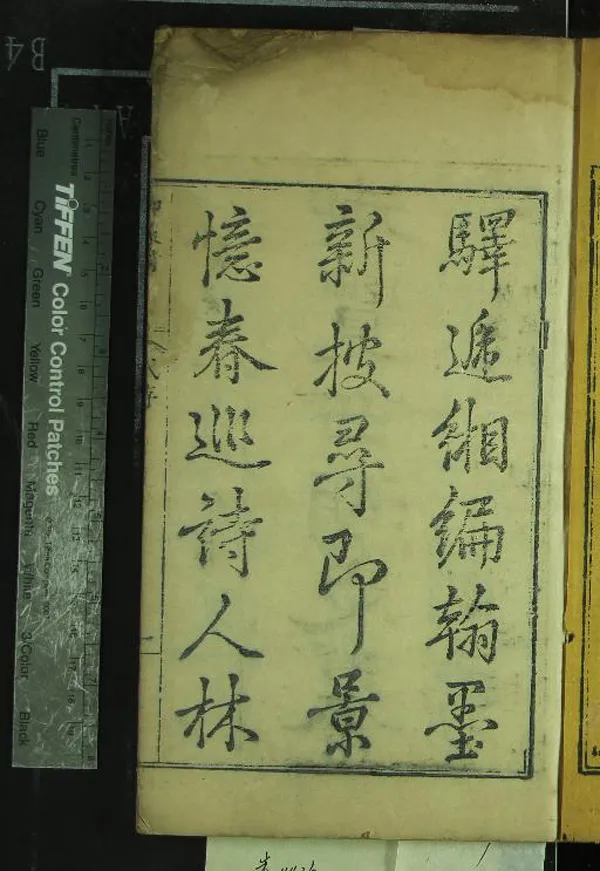 驛遞緗編翰墨
新披尋即景
憶春巡詩人林
B4
TIFFEN Color Control Patches
Centimetres
Blue
Cyan
Green
Yellow
Red
Magenta
White
3/Color
Black